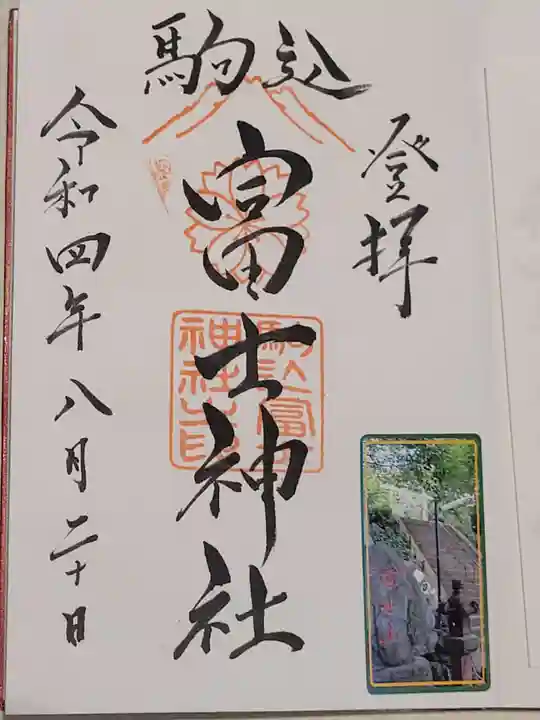 登拝
駒込
富士神社
駒込富士
神社之印
令和四年八月二十日